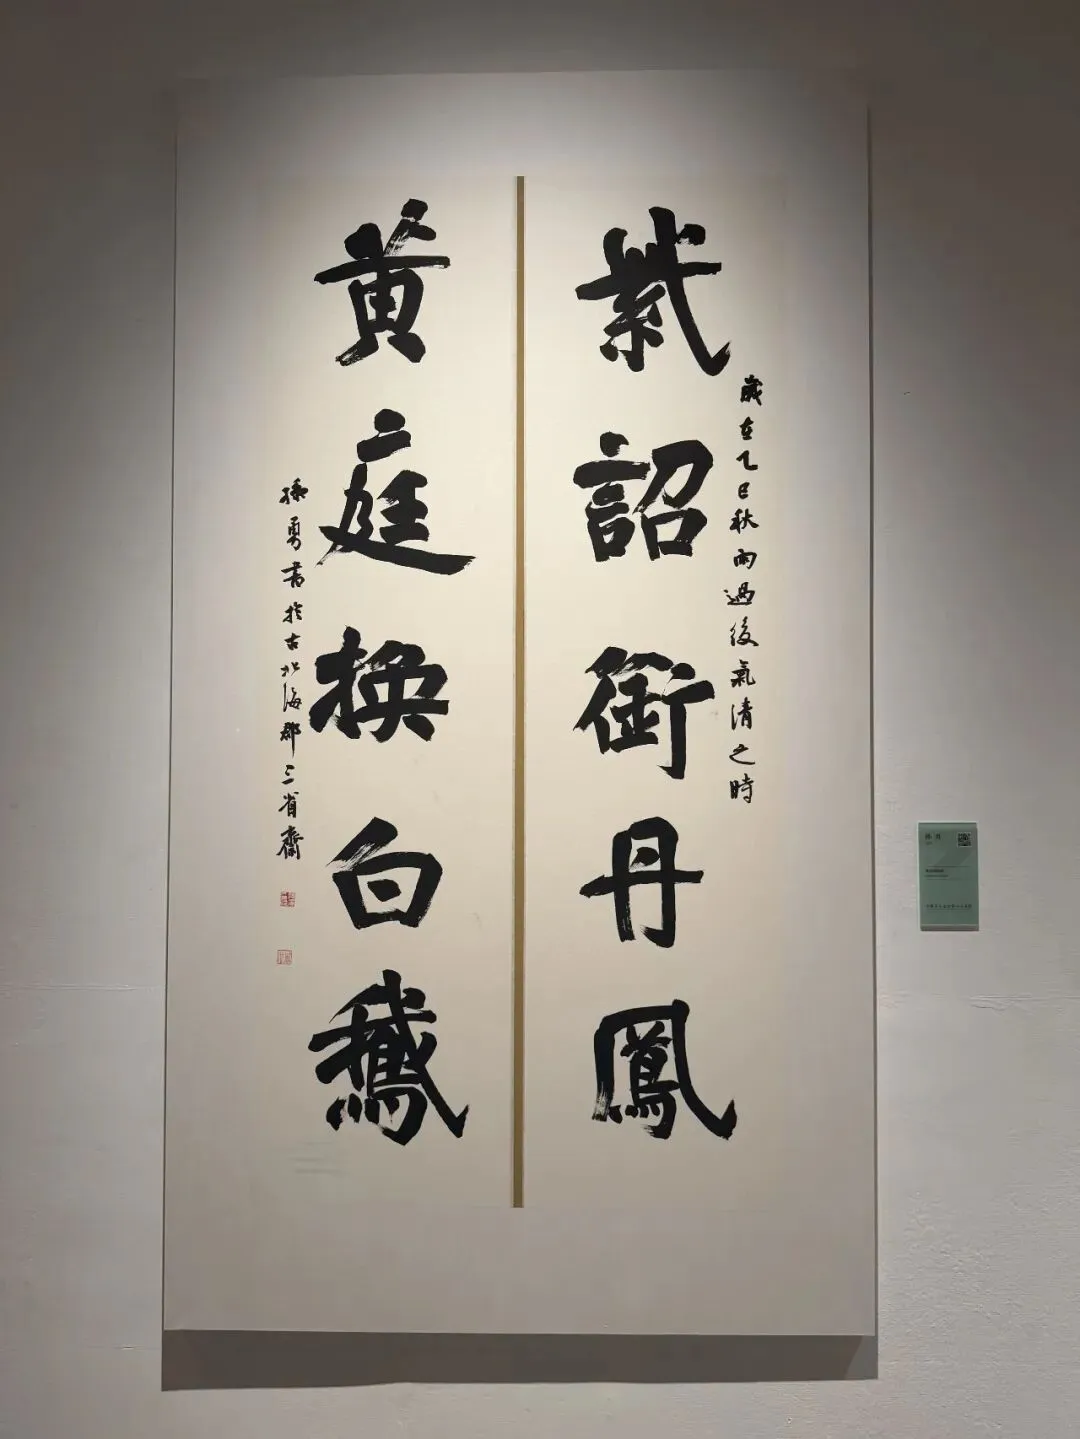 紫詔銜丹鳳
歲在乙巳秋雨過後氣清之時
黃庭換白鵝
孫勇書於古北海郡三省齋